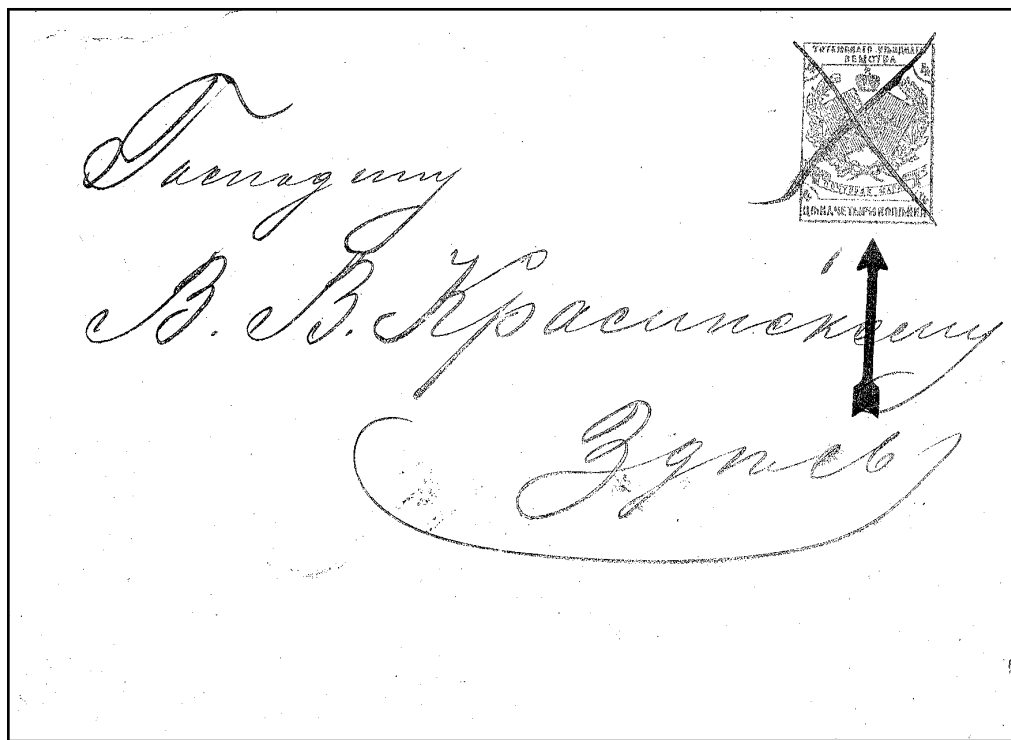 ТОТЕМСКАГО УѢЗДНАГО
ЗЕМСТВА
4 4
ПОЧТОВАЯ МАРКА
4 4
ЦѢНА ЧЕТЫРИ КОПѢЙКИ
Господину
В. В. Красинскому
Здѣсь